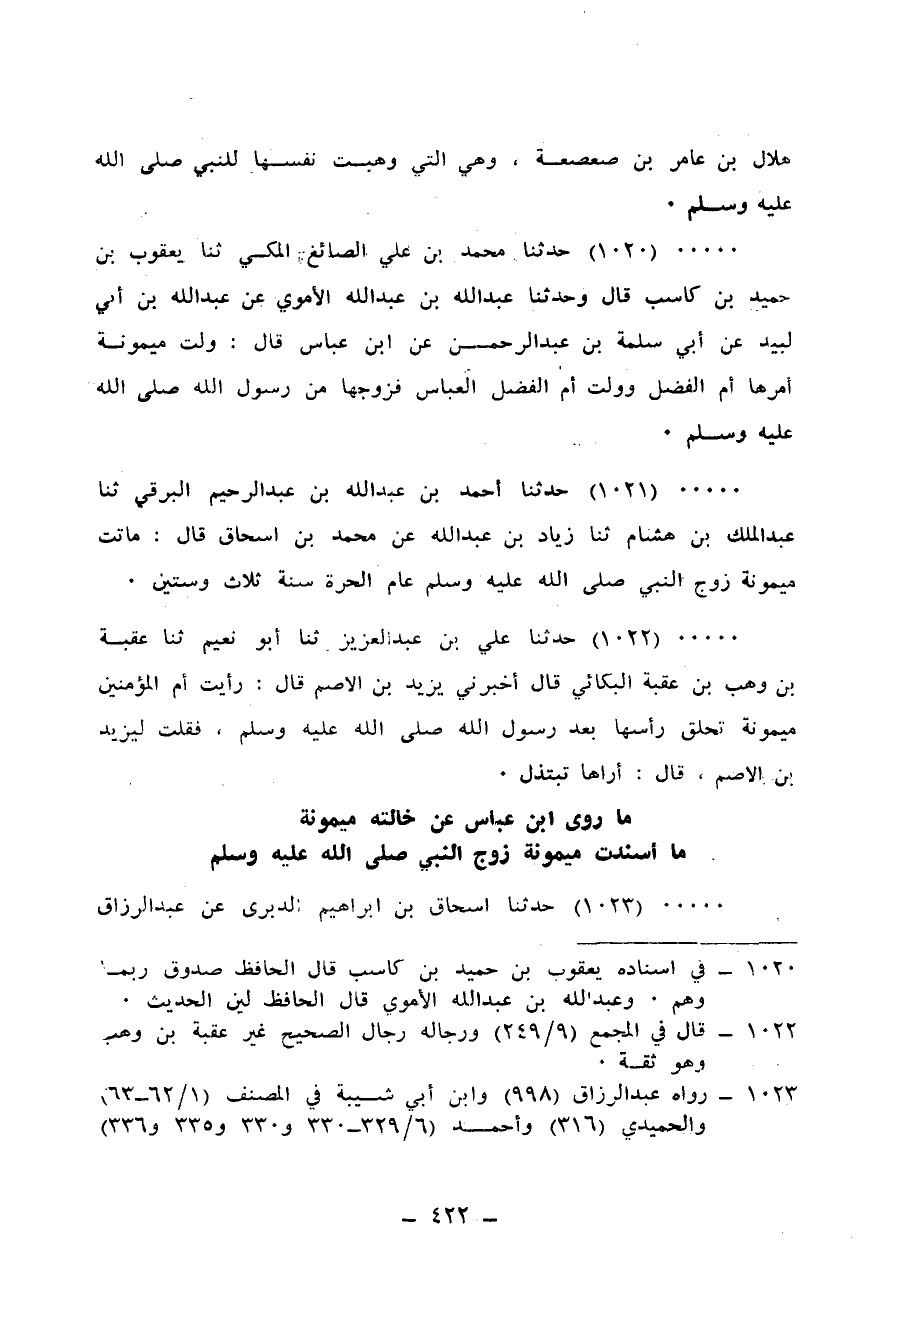 هلال بن عامر بن صعصعـة ، وهي التي وهبـت نفسـها للنبي صلى الله
عليه وسـلم ٠
٠٠٠٠٠ (١٠٢٠) حدثنا محمد بن علي الصائغ المكـي ثنا يعقوب بن
حميد بن كاسب قال وحدثنا عبدالله بن عبدالله الأموي عن عبدالله بن أبي
لبيد عن أبي سلمة بن عبدالرحمـن عن ابن عباس قال : ولت ميمونـة
أمرها أم الفضل وولت أم الفضل العباس فزوجها من رسول الله صلى الله
عليه وسـلم ٠
٠٠٠٠٠ (١٠٢١) حدثنا أحمد بن عبدالله بن عبدالرحيم البرقي ثنا
عبدالملك بن هشام ثنا زياد بن عبدالله عن محمد بن اسحاق قال : ماتت
ميمونة زوج النبي صلى الله عليه وسلم عام الحرة سنة ثلاث وستين ٠
٠٠٠٠٠ (١٠٢٢) حدثنا علي بن عبدالعزيز ثنا أبو نعيم ثنا عقبـة
بن وهب بن عقبة البكائي قال أخبرني يزيد بن الاصم قال : رأيت أم المؤمنين
ميمونة تحلق رأسها بعد رسول الله صلى الله عليه وسلم ، فقلت ليزيد
بن الاصم ، قال : أراها تبتذل ٠
ما روى ابن عباس عن خالته ميمونة
ما أسندت ميمونة زوج النبي صلى الله عليه وسلم
٠٠٠٠٠ (١٠٢٣) حدثنا اسحاق بن ابراهيم الدبرى عن عبدالرزاق
١٠٢٠ ـ في اسناده يعقوب بن حميد بن كاسب قال الحافظ صدوق ربمـا
وهم ٠ وعبدالله بن عبدالله الأموي قال الحافظ لين الحديث ٠
١٠٢٢ ـ قال في المجمع (٢٤٩/٩) ورجاله رجال الصحيح غير عقبة بن وهب
وهو ثقـة ٠
١٠٢٣ ـ رواه عبدالرزاق (٩٩٨) وابن أبي شـيبة في المصنف (٦٢/١ـ٦٣)
والحميدي (٣١٦) وأحمـد (٣٢٩/٦ـ٣٣٠ و٣٣٠ و٣٣٥ و٣٣٦)
ـ ٤٢٢ ـ